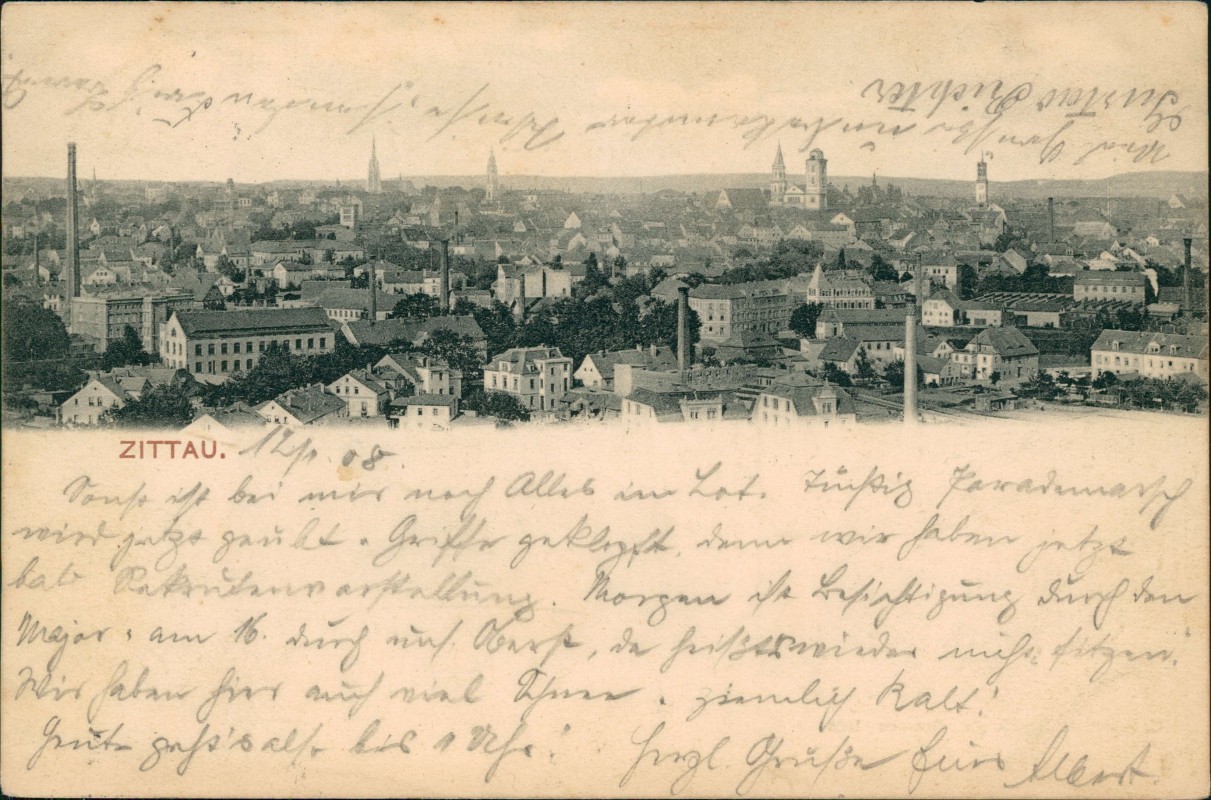 ZITTAU. 12/1. 08.
Sonst ist bei mir noch Alles im Lot. Tüchtig Parademarsch
wird jetzt geübt u. Griffe geklopft, denn wir haben jetzt
bald Rekrutenvorstellung. Morgen ist Besichtigung durch den
Major u. am 16. durch uns. Oberst, da heißts wieder nicht sitzen.
Wir haben hier auch viel Schnee u. ziemlich Kalt!
Heute geht's also bis 1 Uhr! Herzl. Grüße Euer Albert.
Gustav Richter
Viel Grüße unbekannter